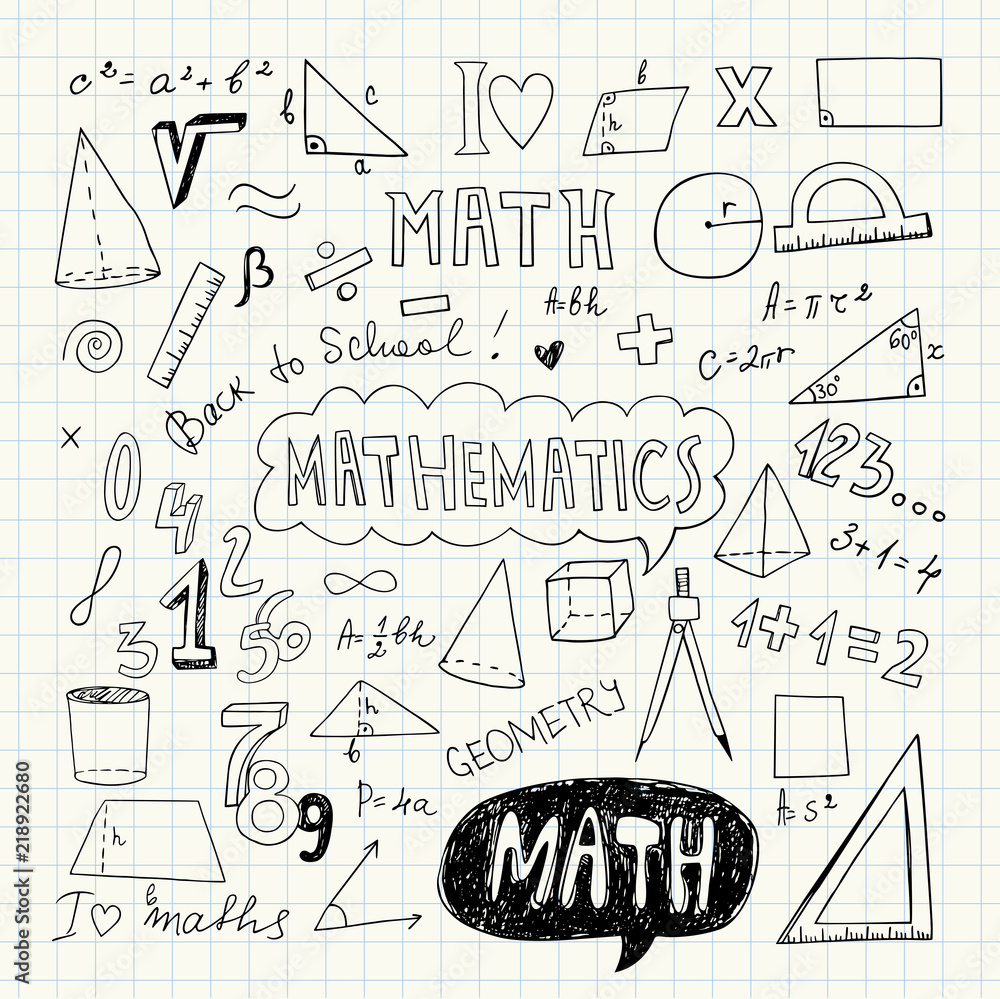 c² = a² + b²
b
c
a
I ♡
b
h
X
√
MATH
r
≈
β
÷
-
A=bh
A=πr²
+
C=2πr
60°
x
30°
Back to School!
x
MATHEMATICS
123...
0
4
2
3+1=4
∞
1
3
5
6
A=½bh
1+1=2
h
b
GEOMETRY
7
8
9
P=4a
A=s²
MATH
h
b
I ♡ maths
Adobe Stock | #218922680